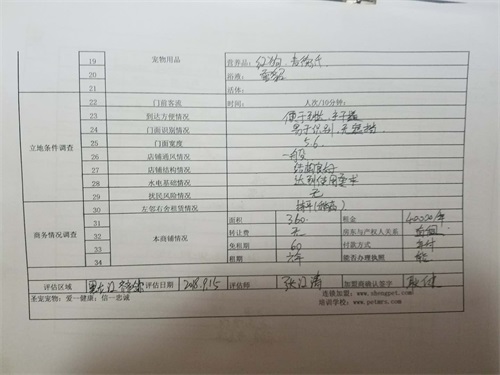 19 宠物用品 营养品: 红狗
20 浴液:
21 活体:
立地条件调查
22 门前客流 时间: 人次/10分钟:
23 到达方便情况
24 门面识别情况 易于识别,无遮挡
25 门面宽度 5.6
26 店铺通风情况 一般
27 店铺结构情况 结构良好
28 水电基础情况 达到使用要求
29 扰民风险情况 无
30 左邻右舍租赁情况
商务情况调查
31 本商铺情况 面积 360 租金 40000/年
32 转让费 无 房东与产权人关系
33 免租期 60 付款方式 年付
34 租期 六年 能否办理执照 能
评估区域 黑龙江 评估日期 2018.9.15 评估师 加盟商确认签字
圣宠宠物:爱一健康;信一忠诚 连锁加盟:www.shengpet.com
培训学校:www.petmrs.com